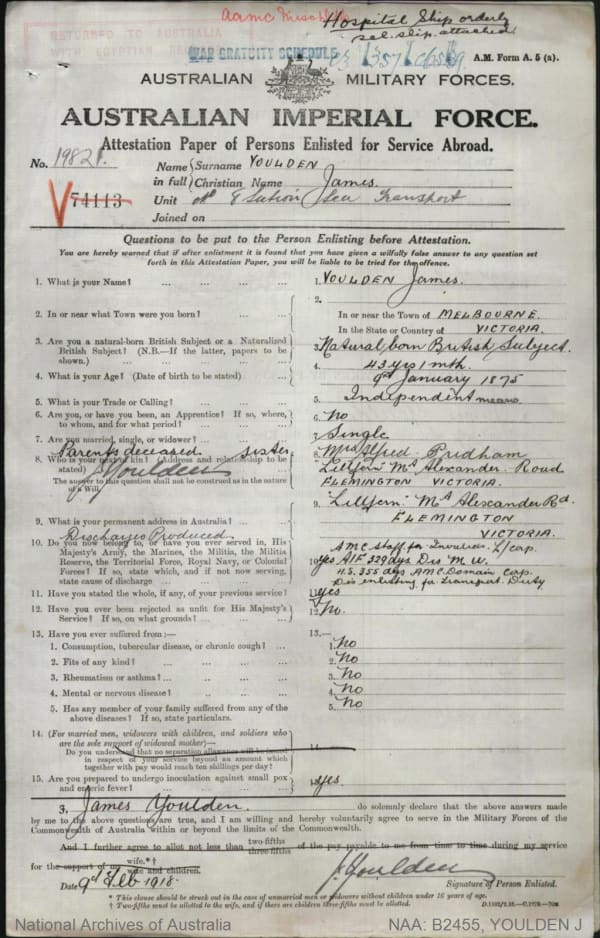 Hospital Ship orderly
sel. slip attached
RETURNED TO AUSTRALIA
WITH EGYPTIAN
WAR GRATUITY SCHEDULE
A.M. Form A. 5 (a).
AUSTRALIAN MILITARY FORCES.
AUSTRALIAN IMPERIAL FORCE.
Attestation Paper of Persons Enlisted for Service Abroad.
No. 19821. Name in full Surname YOULDEN
Christian Name James.
74113 Unit Sea Transport
Joined on
Questions to be put to the Person Enlisting before Attestation.
You are hereby warned that if after enlistment it is found that you have given a wilfully false answer to any question set
forth in this Attestation Paper, you will be liable to be tried for the offence.
1. What is your Name? ... ... ... ... 1. YOULDEN James.
2. In or near what Town were you born? ... 2. In or near the Town of MELBOURNE
In the State or Country of VICTORIA.
3. Are you a natural-born British Subject or a Naturalized
British Subject? (N.B.—If the latter, papers to be
shown.) ... 3. Natural born British Subject.
4. What is your Age? (Date of birth to be stated) ... 4. 43 yrs 1 mth.
9th January 1875
5. What is your Trade or Calling? ... 5. Independent means
6. Are you, or have you been, an Apprentice? If so, where,
to whom, and for what period? ... 6. No
7. Are you married, single, or widower? ... 7. Single
Parents deceased sister
8. Who is your next of kin? (Address and relationship to be
stated) 8. Mrs Alfred Pridham
J Youlden
The answer to this question shall not be construed as in the nature
of a Will.
"Lillfern" Mt Alexander Road
FLEMINGTON VICTORIA.
9. What is your permanent address in Australia? ... 9. "Lillfern" Mt Alexander Rd.
FLEMINGTON
VICTORIA.
Discharges Produced
10. Do you now belong to, or have you ever served in, His
Majesty's Army, the Marines, the Militia, the Militia
Reserve, the Territorial Force, Royal Navy, or Colonial
Forces? If so, state which, and if not now serving,
state cause of discharge ...
AMC Staff for Invalids. L/cpl.
10. Yes AIF 329 dys Dis M U.
H.S. 355 days AMC Domain Camp.
Dis enlisting for Transport Duty
11. Have you stated the whole, if any, of your previous service? 11. Yes
12. Have you ever been rejected as unfit for His Majesty's
Service? If so, on what grounds? ... 12. No.
13. Have you ever suffered from:— 13.—
1. Consumption, tubercular disease, or chronic cough? ... 1. No
2. Fits of any kind? ... 2. No
3. Rheumatism or asthma? ... 3. No
4. Mental or nervous disease? ... 4. No
5. Has any member of your Family suffered from any of the
above diseases? If so, state particulars. 5. No
14. (For married men, widowers with children, and soldiers who
are the sole support of widowed mother)—
Do you understand that no separation allowance will be issued
in respect of your service beyond an amount which
together with pay would reach ten shillings per day? 14.
15. Are you prepared to undergo inoculation against small pox
and enteric fever? 15. Yes.
I, James Youlden. do solemnly declare that the above answers made
by me to the above questions are true, and I am willing and hereby voluntarily agree to serve in the Military Forces of the
Commonwealth of Australia within or beyond the limits of the Commonwealth.
And I further agree to allot not less than two-fifths three-fifths of the pay payable to me from time to time during my service
for the support of my wife.*† wife and children.
Date 9th Feb 1918. J. Youlden
Signature of Person Enlisted.
* This clause should be struck out in the case of unmarried men or widowers without children under 16 years of age.
† Two-fifths must be allotted to the wife, and if there are children three-fifths must be allotted.
National Archives of Australia
NAA: B2455, YOULDEN J